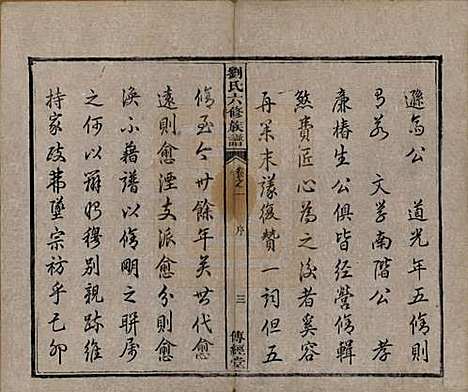 公 道光年五脩則
文學南階公 孝
廉椿生公俱皆經營脩輯
煞費匠心為之後者奚容
再末議復贊一詞但五
劉氏六修族譜
卷之一 序
三
傳經堂
脩至今卅餘年矣世代愈
遠則愈湮支派愈分則愈
渙不藉譜以脩明之聯屬
之何以辨昭穆別親疎維
持家政弗墜宗祊乎己卯